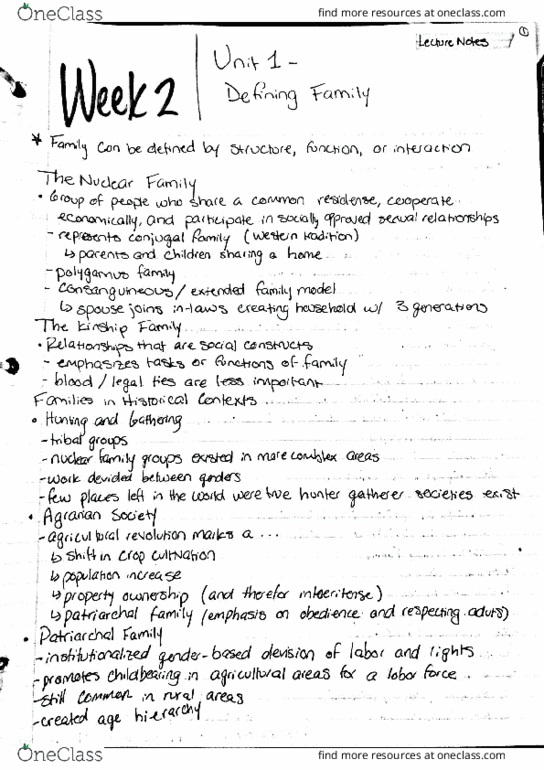 OneClass
find more resources at oneclass.com
Lecture Notes 1
Week 2
Unit 1 -
Defining Family
* Family can be defined by structure, function, or interaction
The Nuclear Family
• Group of people who share a common residense, cooperate
economically, and participate in socially approved sexual relationships
- represents conjugal family (Western tradition)
↳ parents and children sharing a home
- polygamus family
- consanguineous / extended family model
↳ spouse joins in-laws creating household w/ 3 generations
The Kinship Family
• Relationships that are social constructs
- emphasizes tasks or functions of family
- blood / legal ties are less important
Families in Historical Contexts
• Hunting and Gathering
- tribal groups
- nuclear family groups existed in more complex areas
- work devided between genders
- few places left in the world were true hunter gatherer societies exist
• Agrarian Society
- agricultural revolution marks a ...
↳ shift in crop cultivation
↳ population increase
↳ property ownership (and therefor
↳ patriarchal family (emphasis on obedience and respecting adults)
• Patriarchal Family
- institutionalized gender-based devision of labor and rights
- promotes childbearing in agricultural areas for a labor force
- still common in rural areas
- created age hierarchy
OneClass
find more resources at oneclass.com